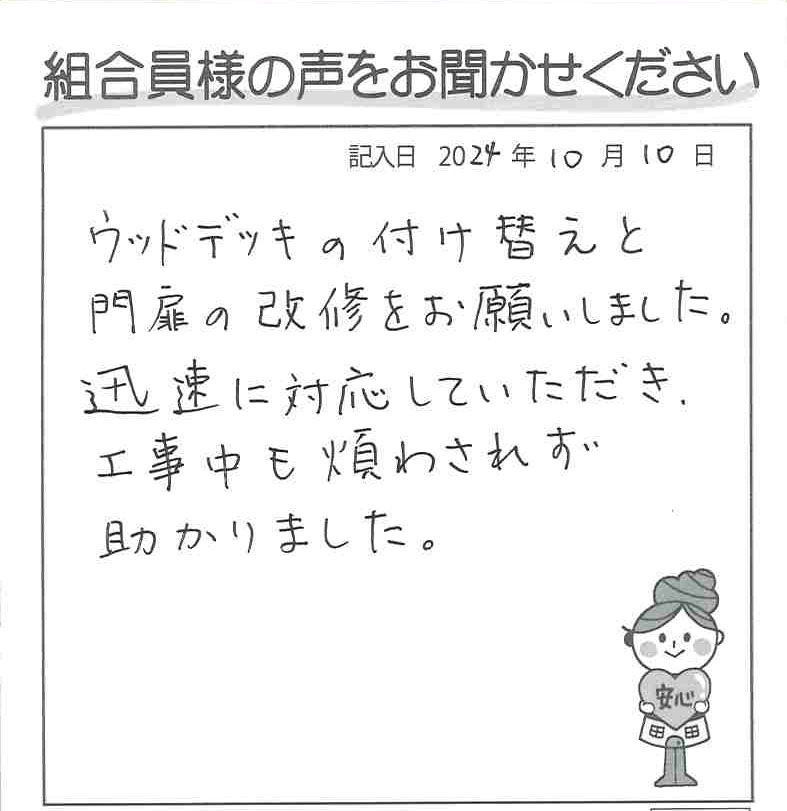 組合員様の声をお聞かせください
記入日 2024年10月10日
ウッドデッキの付け替えと
門扉の改修をお願いしました。
迅速に対応していただき、
工事中も煩わされず
助かりました。
安心